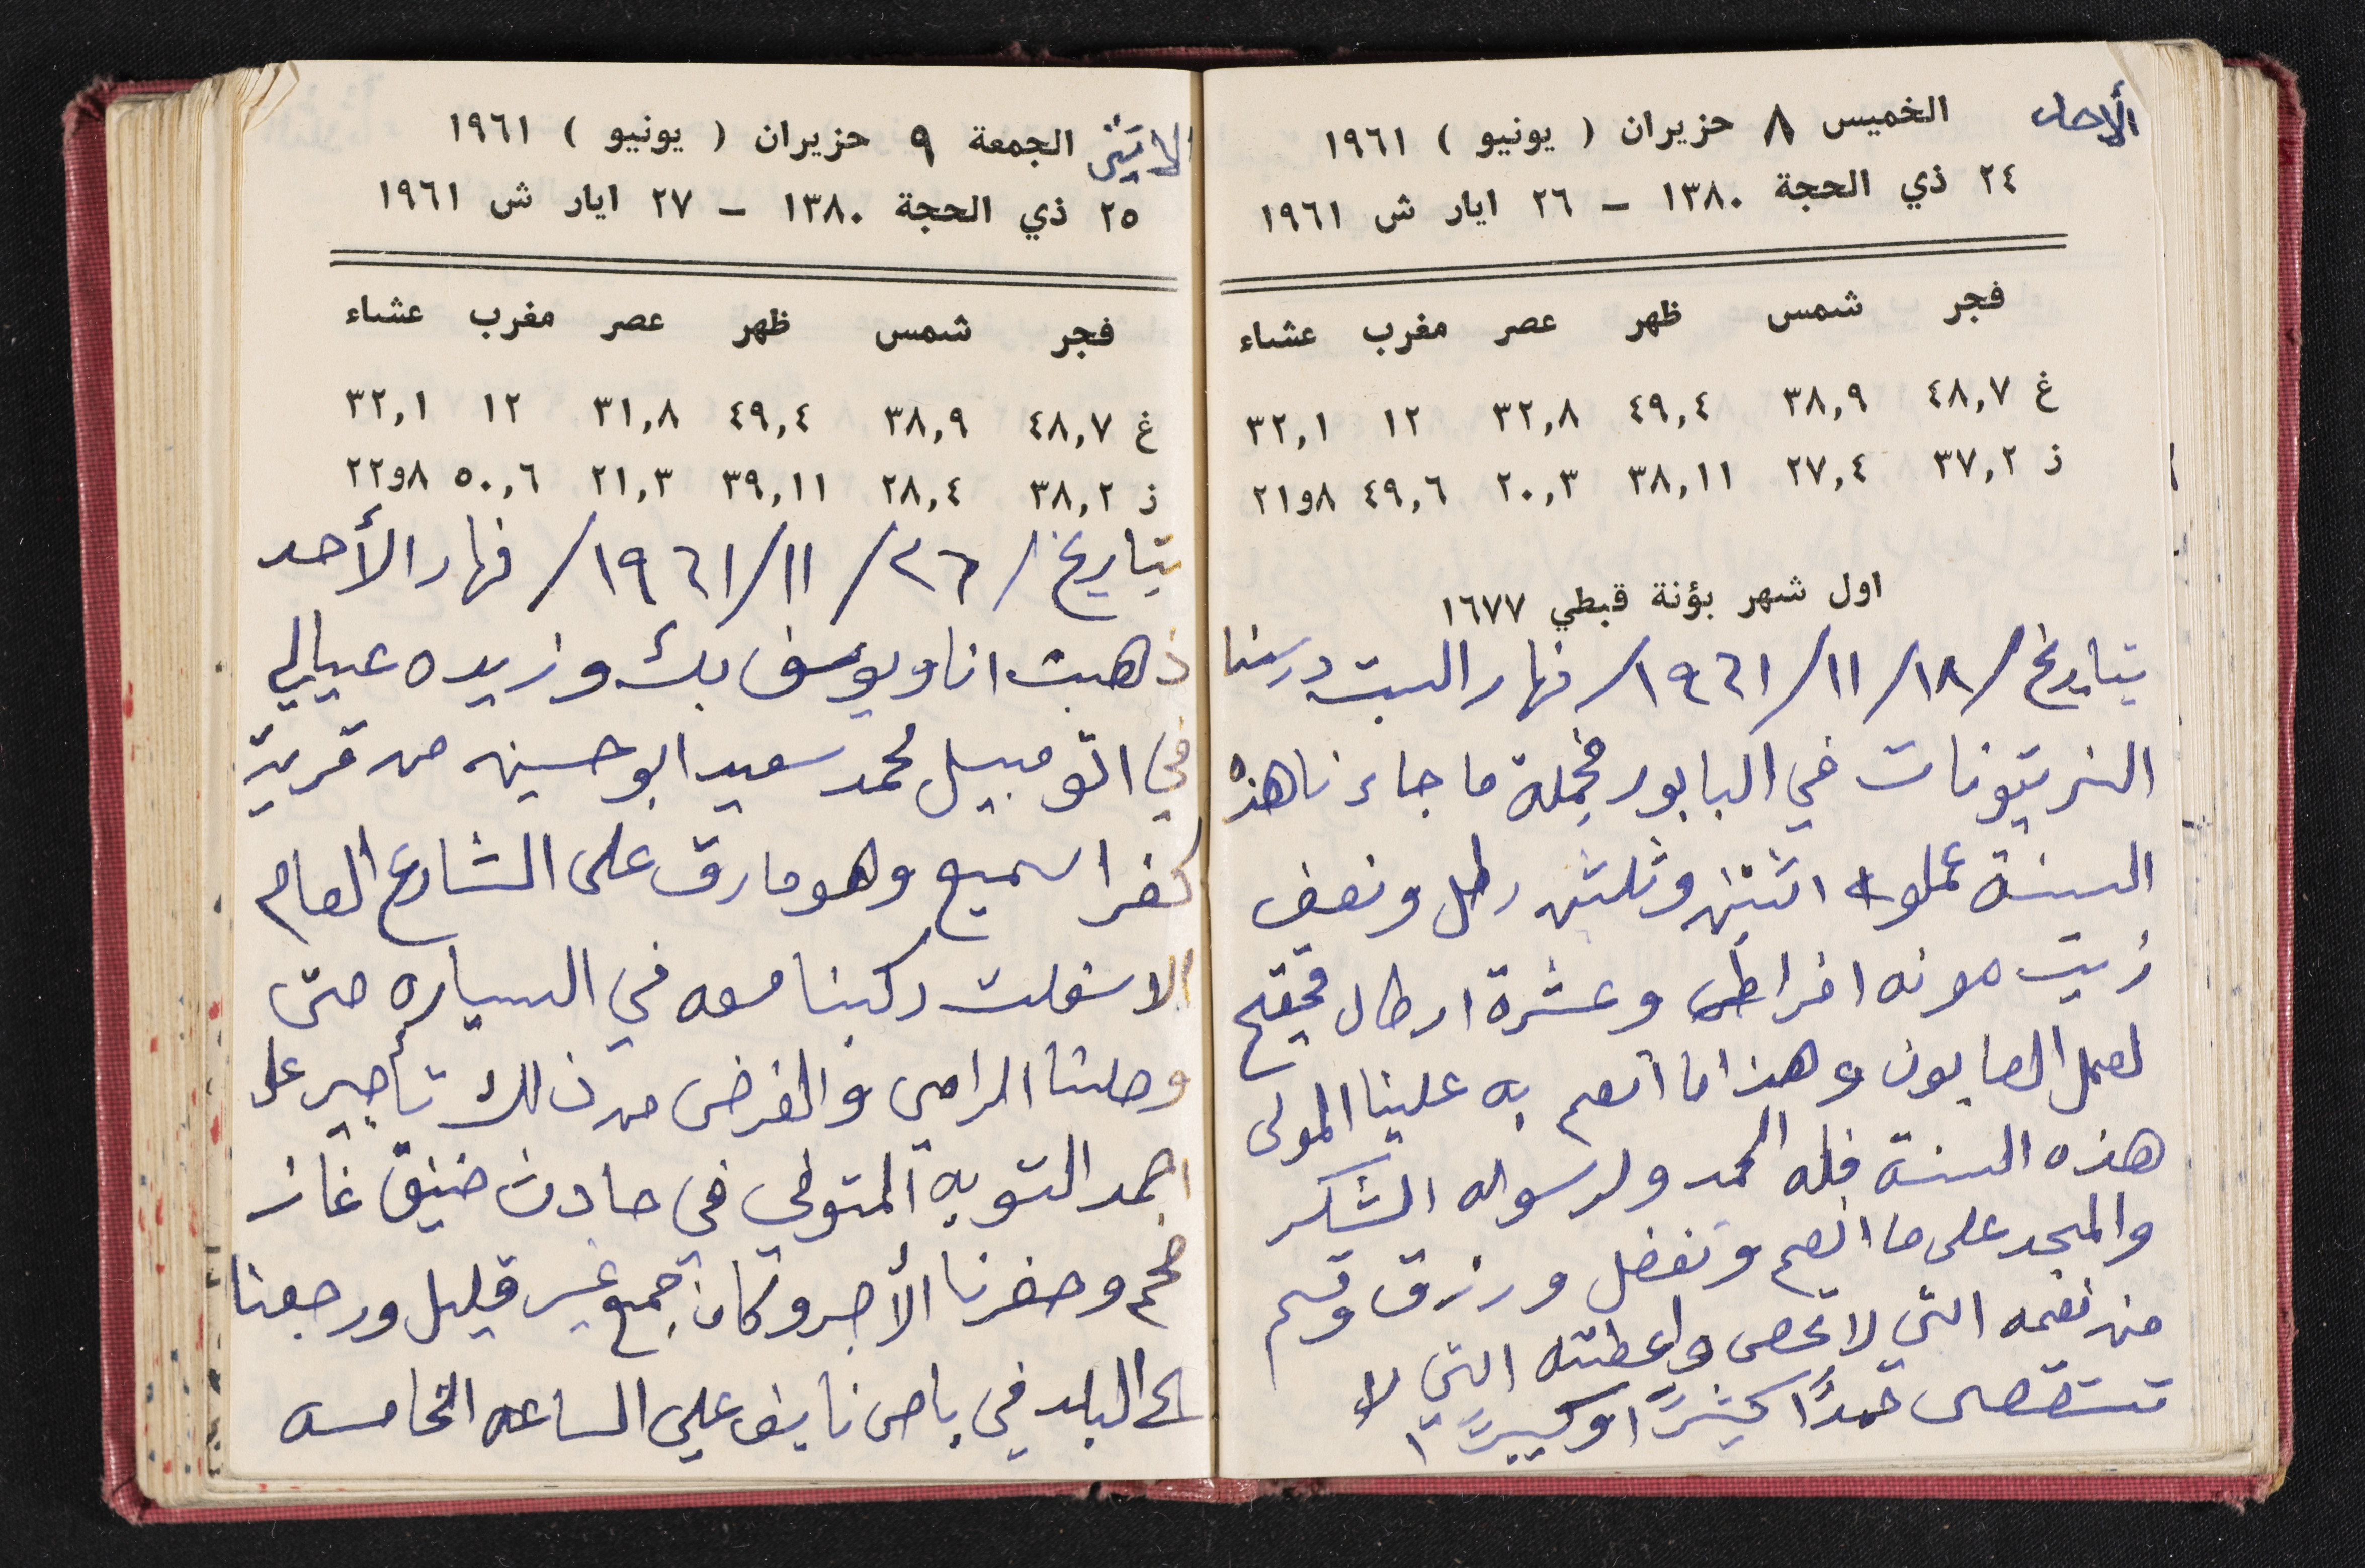 الأحد
الخميس ٨ حزيران ( يونيو ) ١٩٦١
٢٤ ذي الحجة ١٣٨٠ – ٢٦ ايار ش ١٩٦١
فجر شمس ظهر عصر مغرب عشاء
غ ٤٨,٧ ٣٨,٩ ٤٩,٤ ٣٢,٨ ١٢ ٣٢,١
ز ٣٧,٢ ٢٧,٤ ٣٨,١١ ٢٠,٣ ٤٩,٦ ٨و٢١
اول شهر بؤنة قبطي ١٦٧٧
بتاريخ /١٨/ ١١/ ١٩٦١/ نهار السبت درسنا
الزيتونات في البابور فجملة ما جاءنا هذه
السنة عملوا اثنين وثلثين رطل ونصف
زيت مونه افراطي وعشرة ارطال
لعمل الصابون وهذا ما أنعم به علينا المولى
هذه السنة فلله الحمد ولرسوله الشكر
والمجد على ما انعم وتفضل ورزق وقسم
من نعمه التي لا تحصى واعطيته التي لا
تستقصى حمدًا كثيرًا وكبيرًا
الاثنين الجمعة ٩ حزيران ( يونيو ) ١٩٦١
٢٥ ذي الحجة ١٣٨٠ – ٢٧ ايار ش ١٩٦١
فجر شمس ظهر عصر مغرب عشاء
غ ٤٨,٧ ٣٨,٩ ٤٩,٤ ٣١,٨ ١٢ ٣٢,١
ز ٣٨,٢ ٢٨,٤ ٣٩,١١ ٢١,٣ ٥٠,٦ ٨و٢٢
بتاريخ / ٢٦/ ١١/ ١٩٦١/ نهار الأحد
ذهبت انا ويوسف بك وزيده عيالي
في اتومبيل محمد سعيد ابو حسين من قرية
كفر اسميع وهو مارق على الشارع العام
الاسفلت ركبنا معه في السياره حتى
وصلنا الرامي والغرض من ذلك تأجير على
احمد التوبه المتوفي في حادث خنيق غاز
فحم وحضرنا الأجر وكان جمع غير قليل ورجعنا
الى البلد في باص نايف علي الساعه الخامسه